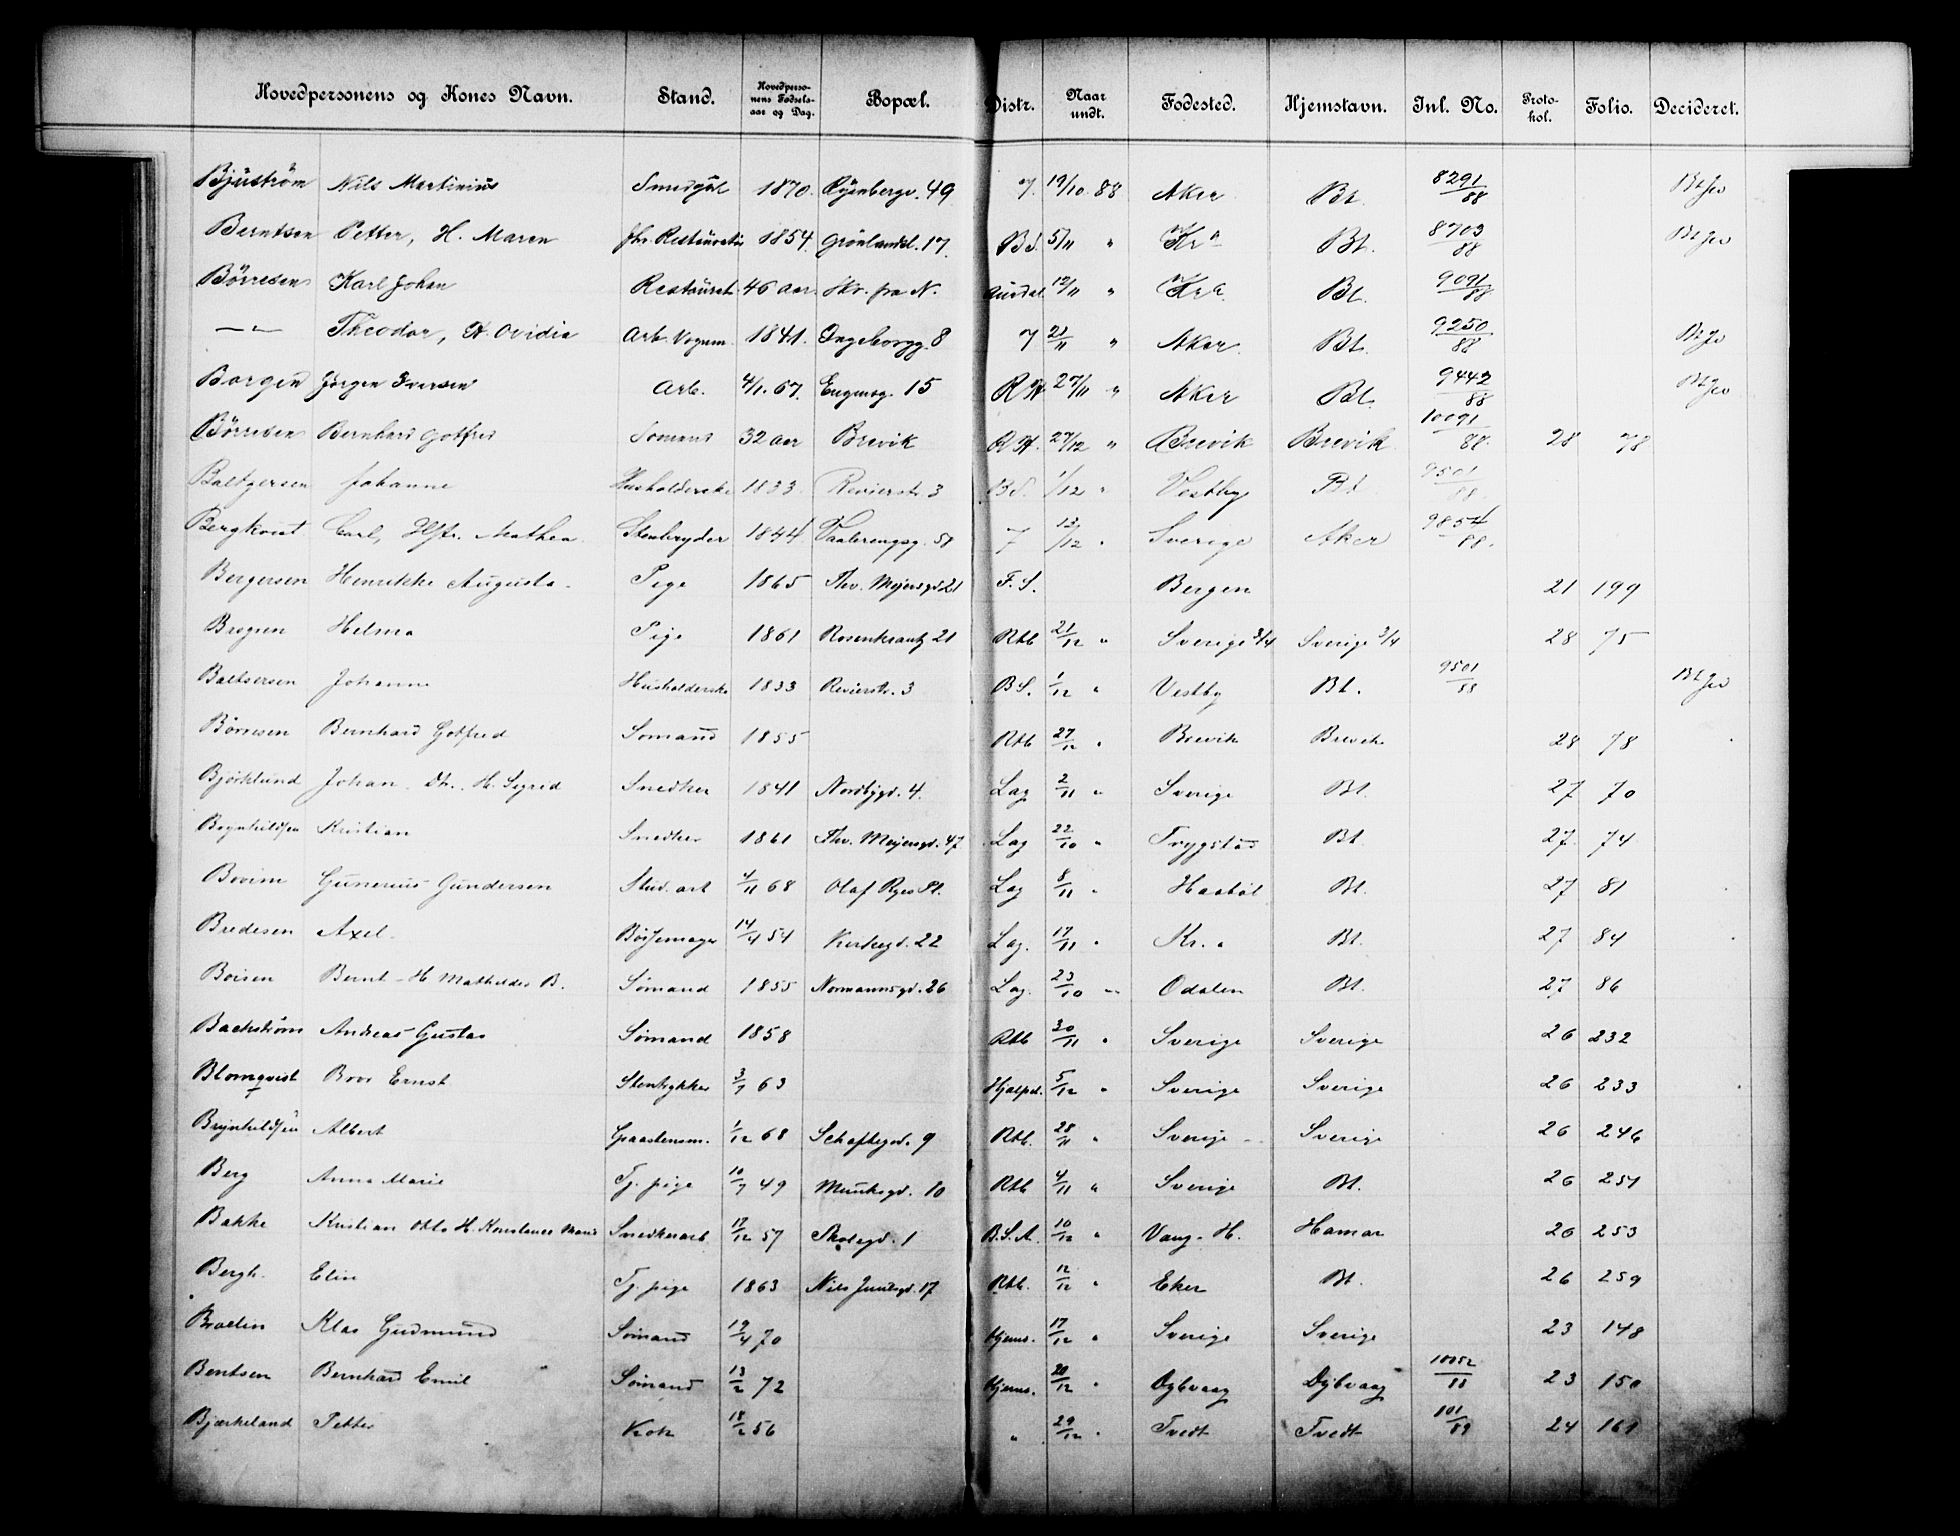 Hovedpersonens og Kones Navn. Stand. Hovedpersonens Fødselsaar og Dag. Bopæl. Distr. Naar undt. Fødested. Hjemstavn. Inl. No. Protokol. Folio. Decideret.
Bjuström Nils Martinius 1870. 49 7. 19/10 88 Aker Bt. 8291/88
Berntsen Petter, H. Maren 1854. Grønlandsl. 17. B.S. 5/11 " Kra Bt. 8703/88
Børresen Karl Johan Restaurat. 46 Aar. N. 12/11 " Kra. Bt. 9091/88
—"— Theodor, H. Ovidia Arb. Vognm. 1841. Ingeborgg. 8 7 21/11 " Aker. Bt. 9250/88
Borgen Jörgen Iversen Arb. 4/1. 67. Eugensg. 15 R.H. 27/11 " Aker Bt. 9442/88
Börresen Bernhard Gotfred Sömand 32 Aar Brevik R.H. 27/12 " Brevik Brevik 10091/88. 28 78
Baltzersen Johanne Husholderske 1833. Revierstr. 3 B.S. 1/12 " Vestby Bt. 9501/88.
Bergkvist Carl, Hstr. Mathea Stenbryder 1844 Vaalerengsg. 7 13/12 " Sverige Aker 9854/88.
Bergersen Henrikke Augusta Pige 1865 Thv. Meyersgd 21 F.S. Bergen 21 199
Helma Pige 1861 Rosenkrantz 21 Rtb 21/12 " Sverige 3/4 Sverige 3/4 28 75
Baltsersen Johanne Husholderske 1833 Revierstr. 3 B.S. 1/12 " Vestby Bt. 9501/88
Börresen Bernhard Gotfred Sömand 1855 Rtb 27/12 " Brevik Brevik 28 78
Björklund Johan H. Sigrid Snedker 1841 Nordbygd. 4. Lag 2/11 " Sverige Bt. 27 70
Brynhildsen Kristian Snedker 1861 Thv. Meyersgd. 47 Lag 22/10 " Trygstad Bt. 27. 74
Bovim Gunerius Gundersen Stud. art 4/11 68 Olaf Ryes Pl. Lag 8/11 " Bt. 27 81
Bredesen Axel. Bössemager 14/4 54 Kirkegd. 22 Lag. 17/11 " Kr. a Bt. 27 84
Boisen Bernt - H Mathilde B. Sömand 1855 Normannsgd. 26 Lag. 23/10 " Odalen Bt. 27 86
Backström Andreas Gustav Sömand 1858 Rtb 30/11 " Sverige Sverige 26 232
Blomqvist Ernst 3/7 63 Hjælpd. 5/12 " Sverige Sverige 26 233
Brynhildsen Albert Graastensm. 1/12 68 9 Rtb. 28/11 " Sverige Sverige 26 246
Berg Anna Marie Tj. pige 10/7 49 Munkegd. 10 Rtb 4/11 " Sverige Bt. 26 251
Bakke Kristian Otto H. Snedkerarb 17/12 57 Skolegd. 1 B.S.A. 10/12 " Vang - H. Hamar 26 253
Bergh. Elin Tj. pige 1863 Nils Juulsgd. 17 Rtb. 12/12 " Eker Bt. 26 259
Klas Gudmund Sömand 19/4 70 Hjems. 17/12 " Sverige Sverige 23 148
Bentsen Bernhard Emil Sömand 13/2 72 Hjems. 20/12 " Dybvaag Dybvaag 10052/88 23 150
Bjærkeland Petter Kok 18/2 56 " 29/12 " Tvedt Tvedt 101/89 24 161